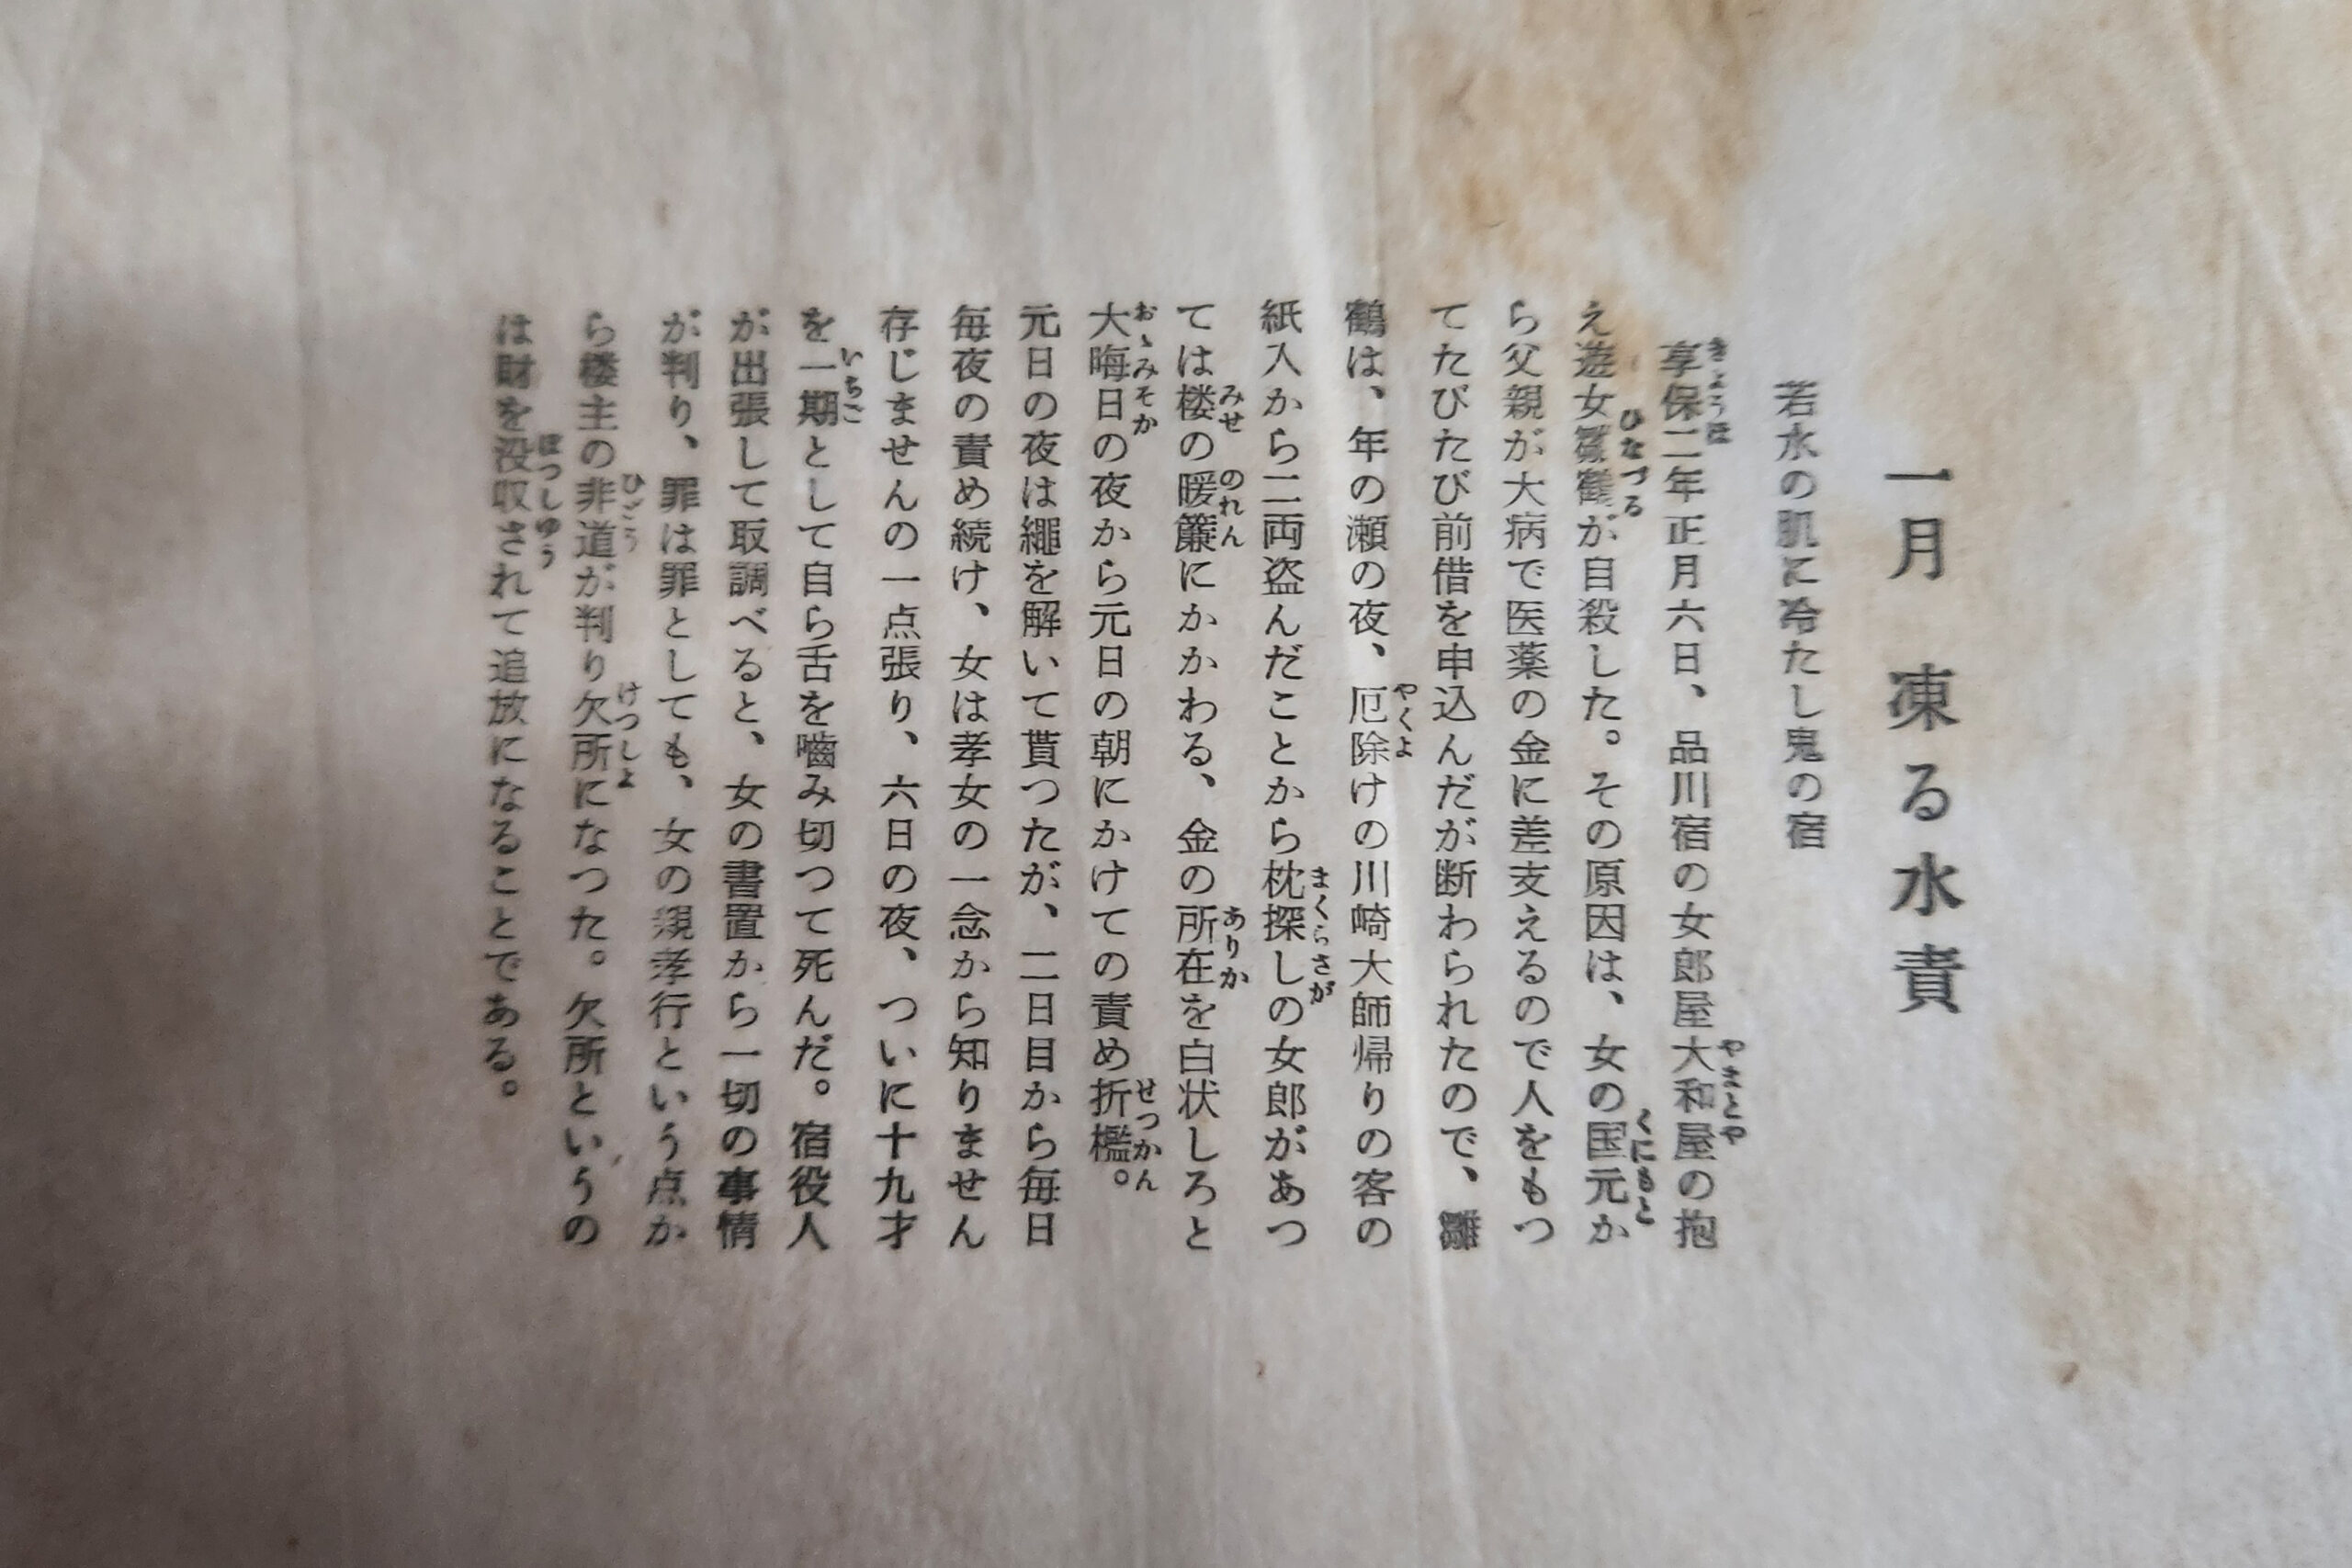 一月　凍る水責
若水の肌に冷たし鬼の宿
享保二年正月六日、品川宿の女郎屋大和屋の抱
え遊女雛鶴が自殺した。その原因は、女の国元か
ら父親が大病で医薬の金に差支えるので人をもつ
てたびたび前借を申込んだが断わられたので、雛
鶴は、年の瀬の夜、厄除けの川崎大師帰りの客の
紙入から二両盗んだことから枕探しの女郎があつ
ては楼の暖簾にかかわる、金の所在を白状しろと
大晦日の夜から元日の朝にかけての責め折檻。
元日の夜は縄を解いて貰つたが、二日目から毎日
毎夜の責め続け、女は孝女の一念から知りません
存じませんの一点張り、六日の夜、ついに十九才
を一期として自ら舌を嚙み切つて死んだ。宿役人
が出張して取調べると、女の書置から一切の事情
が判り、罪は罪としても、女の親孝行という点か
ら楼主の非道が判り欠所になつた。欠所というの
は財を没収されて追放になることである。
きょうほ
やまとや
ひなづる
くにもと
やくよ
まくらさが
みせ
のれん
ありか
おゝみそか
せつかん
いちご
ひどう
けつしよ
ぼつしゆう